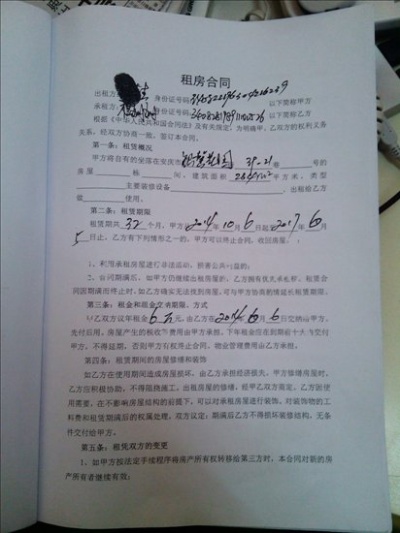 租房合同
出租方 身份证号码 以下简称甲方
承租方 身份证号码 以下简称乙方
根据《中华人民共和国合同法》及有关规定，为明确甲、乙双方的权利义务
关系，经双方协商一致，签订本合同。
第一条：租赁概况
甲方将自有的坐落在安庆市 39-21 号的
房屋 栋 间，建筑面积 平方米、类型
主要装修设备 ，出租给乙方
做 使用。
第二条：租赁期限
租赁期共 32 个月，甲方 2014 年 10 月 6 日起 2017 年 6 月
5 日止。乙方有下列情形之一的，甲方可以终止合同，收回房屋。
1、利用承租房屋进行非法活动，损害公共利益的；
2、合同期满后，如甲方仍继续出租房屋的，乙方拥有优先承租权。租赁合
同因期满而终止时，如乙方确实无法找到房屋，可与甲方协商酌情延长租赁期限。
第三条：租金和租金交纳期限、方式
甲乙双方议年租金 6 万元，由乙方在 2014 年 10 月 6 日交纳给甲方。
先付后用，房屋产生的税收 费用由甲方承担。下年租金应在到期前 个月交付
甲方，不得延期，否则甲方有权终止合同。物业管理费用由乙方承担。
第四条：租赁期间的房屋修缮和装饰
如乙方在使用期间造成房屋损坏，由乙方承担经济损失。甲方修缮房屋时，
乙方应积极协助，不得阻挠施工。出租房屋的修缮，经甲乙双方商定，乙方因使
用需要，在不影响房屋结构的前提下，可以对承租房屋进行装饰。对装饰物的工
料费和租赁期满后的权属处理，双方议定：期满后乙方不得损坏装修结构，无条
件交付给甲方。
第五条：租凭双方的变更
1、如甲方按法定手续程序将房产所有权转移给第三方时，本合同对新的房
产所有者继续有效；